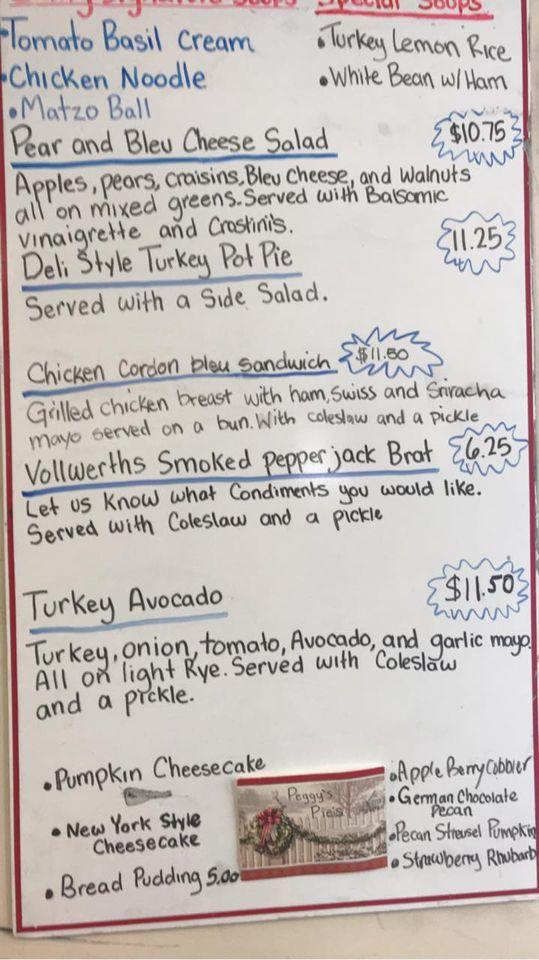 Soups Special Soups
Tomato Basil Cream
•Chicken Noodle
•Matzo Ball
•Turkey Lemon Rice
•White Bean w/Ham
Pear and Bleu Cheese Salad $10.75
Apples, pears, craisins, Bleu Cheese, and Walnuts
all on mixed greens. Served with Balsamic
vinaigrette and Crostini's.
Deli Style Turkey Pot Pie 11.25
Served with a Side Salad.
Chicken Cordon bleu Sandwich $11.50
Grilled chicken breast with ham, Swiss and Sriracha
mayo served on a bun. With coleslaw and a pickle
Vollwerths Smoked pepper jack Brat 6.25
Let us know what Condiments you would like.
Served with Coleslaw and a pickle
Turkey Avocado $11.50
Turkey, onion, tomato, Avocado, and garlic mayo.
All on light Rye. Served with Coleslaw
and a pickle.
•Pumpkin Cheesecake
•New York Style
Cheesecake
•Bread Pudding 5.00
Peggy's
Pies
•Apple Berry Cobbler
•German Chocolate
Pecan
•Pecan Streusel Pumpkin
•Strawberry Rhubarb